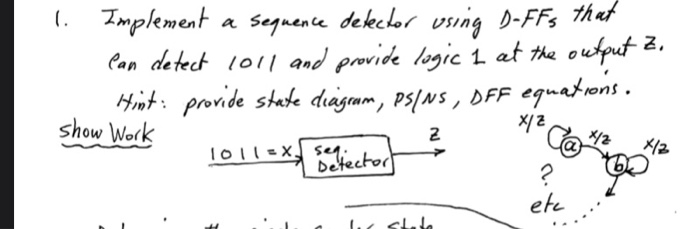 1. Implement a sequence detector using D-FFs that
Can detect 1011 and provide logic 1 at the output Z.
Hint: provide state diagram, PS/NS, DFF equations.
Show Work
1011 = X
seq.
Detector
Z
X/Z
a
X/Z
b
X/Z
?
etc